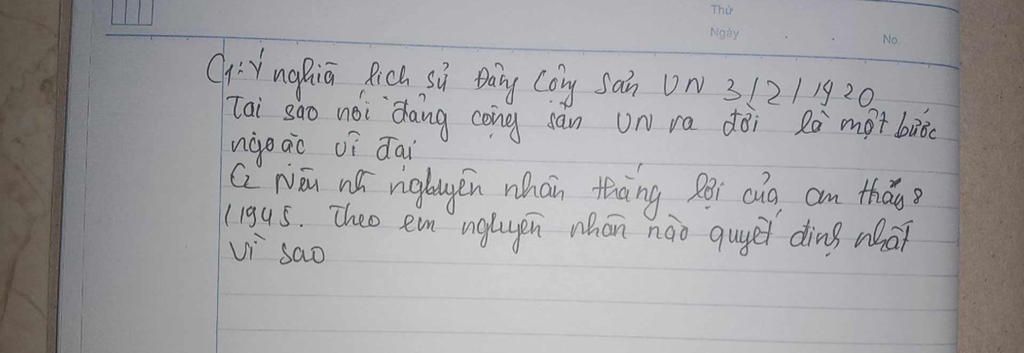 Thứ
Ngày . . No.
C1: Ý nghiã lich sử Đảng Cộng Sản VN 3/2/1920
Tai sao nói đảng cộng sản VN ra đời là một bước
ngoăc vĩ đai
C2 Nêu nh nguyên nhân thắng lợi của cm tháng 8
/1945. Theo em nguyên nhân nào quyết định nhất
vì sao